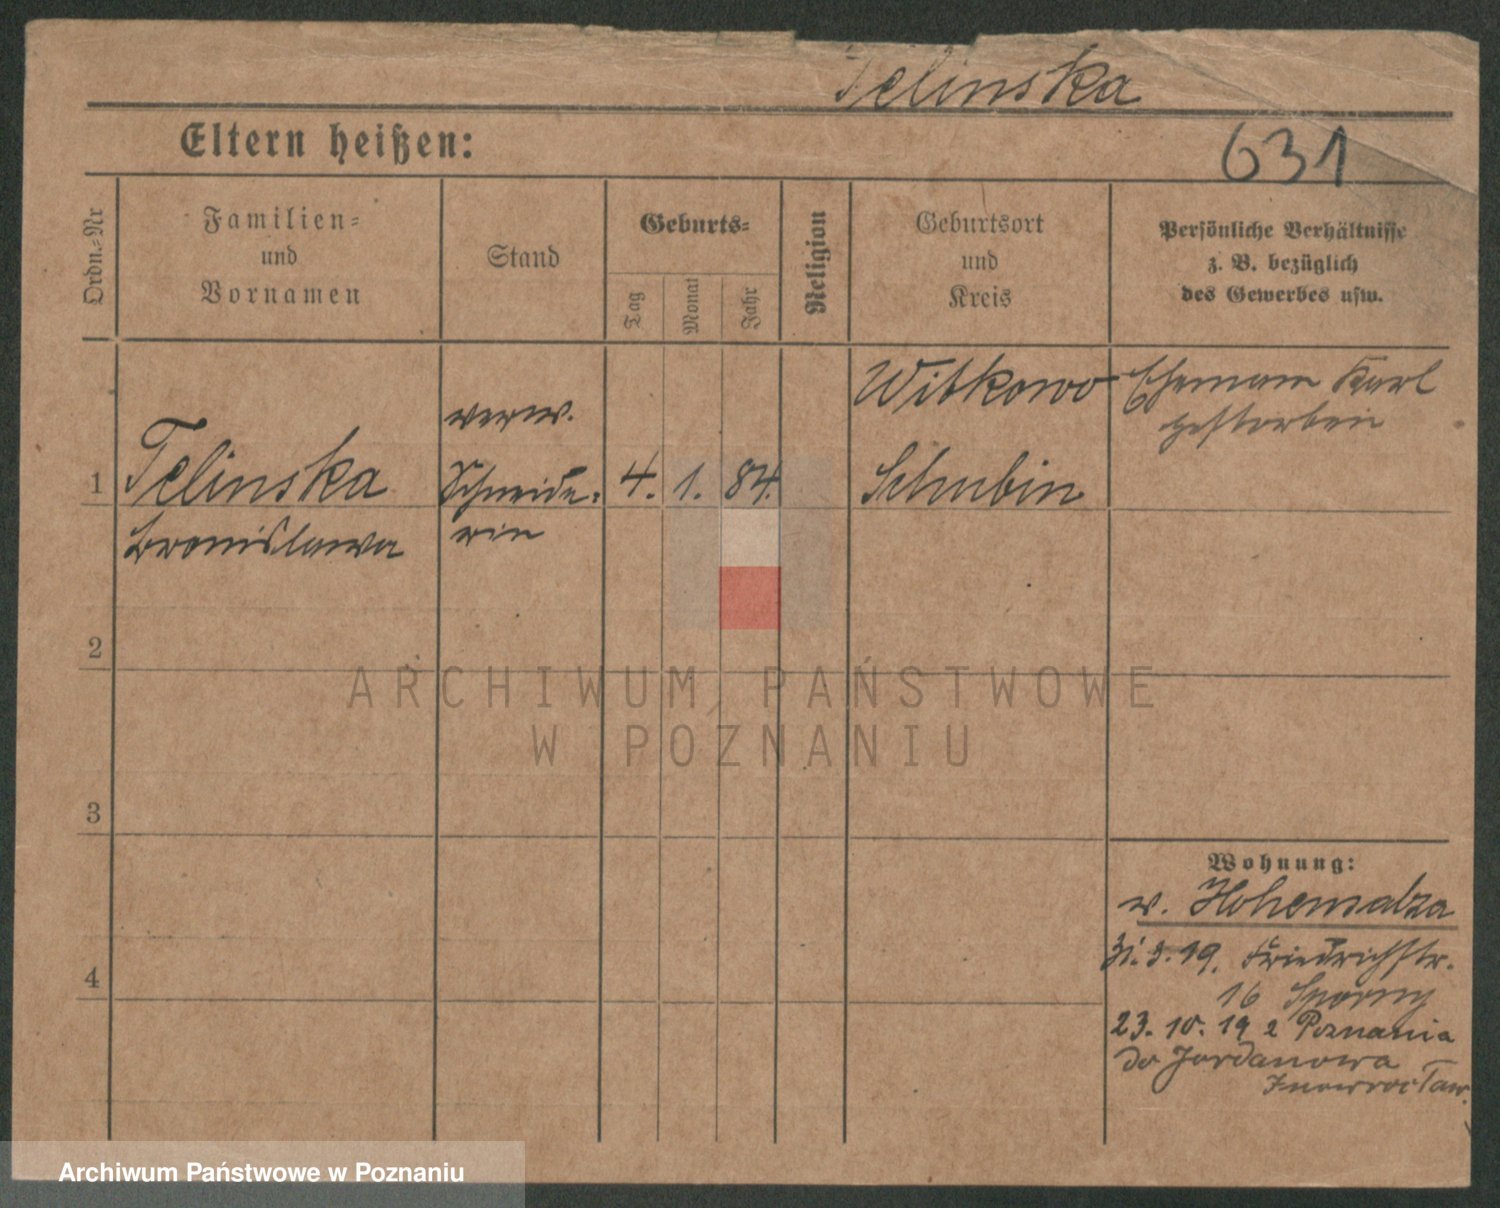 Telinska
Eltern heißen:
631
Ordn.-Nr
Familien-
und
Vornamen
Stand
Geburts-
Tag
Monat
Jahr
Religion
Geburtsort
und
Kreis
Persönliche Verhältnisse
z. B. bezüglich
des Gewerbes usw.
1
Telinska
Bronislawa
verw.
Schneide-
rin
4.
1.
84.
Witkowo
Schubin
Ehemann Karl
gestorben
2
3
4
Wohnung:
v. Hohensalza
31. 3. 19. Friedrichstr.
16 Sporny
23. 10. 19 z Poznania
do Jordanowa
Inowrocław.
ARCHIWUM PAŃSTWOWE
W POZNANIU
Archiwum Państwowe w Poznaniu